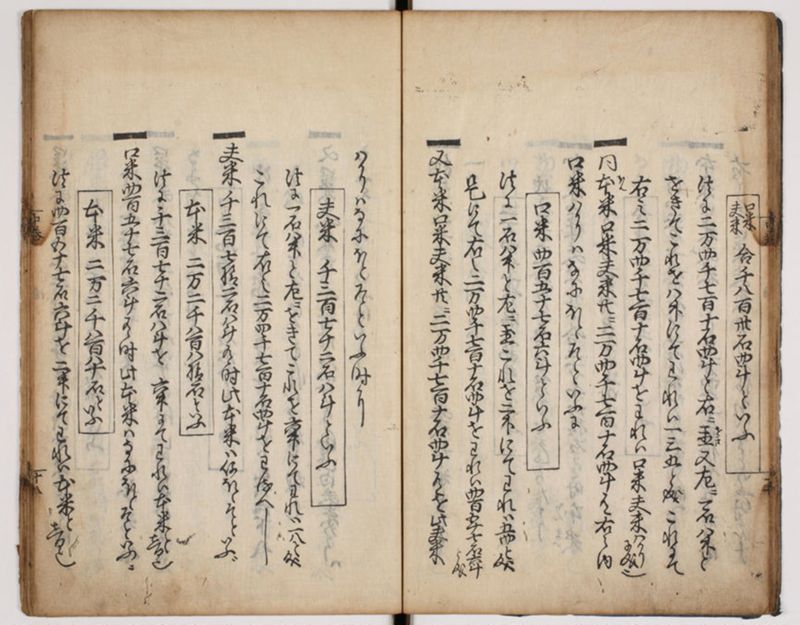 口米夫米 合千八百卅石四斗といふ
法に二万四千七百十石四斗と右ニ置又左ニ一石八舛と
をき候てこれを八舛にてわれハ一三五と成これにて
右之二万四千七百十石四斗をわれハ口米夫米ハかり
同本米口米夫米共ニ二万四千七百十石四斗有右之内
口米ハかりハなにほとそといふに
口米四百五十七石六斗といふ
法に一石八舛と左ニ置これを二舛にてわれハ五四と成
是にて右之二万四千七百十石四斗をわれハ四百五十七石六斗と成
又本米口米夫米共ニ二万四千七百十石四斗有を此夫米
ハかりハなにほとそといふ時に
夫米 千三百七十二石八斗といふ
法に一石八舛と左ニをきてこれを六舛にてわれハ一八と成
これにて右之二万四千七百十石四斗をわるへし
夫米千三百七拾二石八斗有時此本米ハ何ほとそといふ
本米 二万二千八百八拾石といふ
法に千三百七十二石八斗を六舛にてわれハ本米と知也
口米四百五十七石六斗有時此本米ハなにほとそといふに
本米 二万二千八百八十石といふ
法に四百五十七石六斗を二舛にてわれハ本米と知也